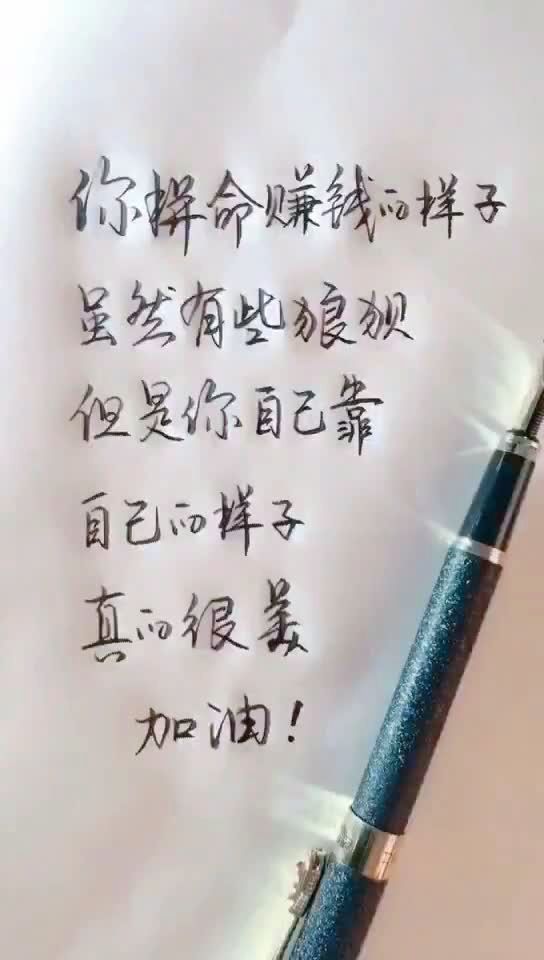 你拼命赚钱的样子
虽然有些狼狈
但是你自己靠
自己的样子
真的很美
加油！